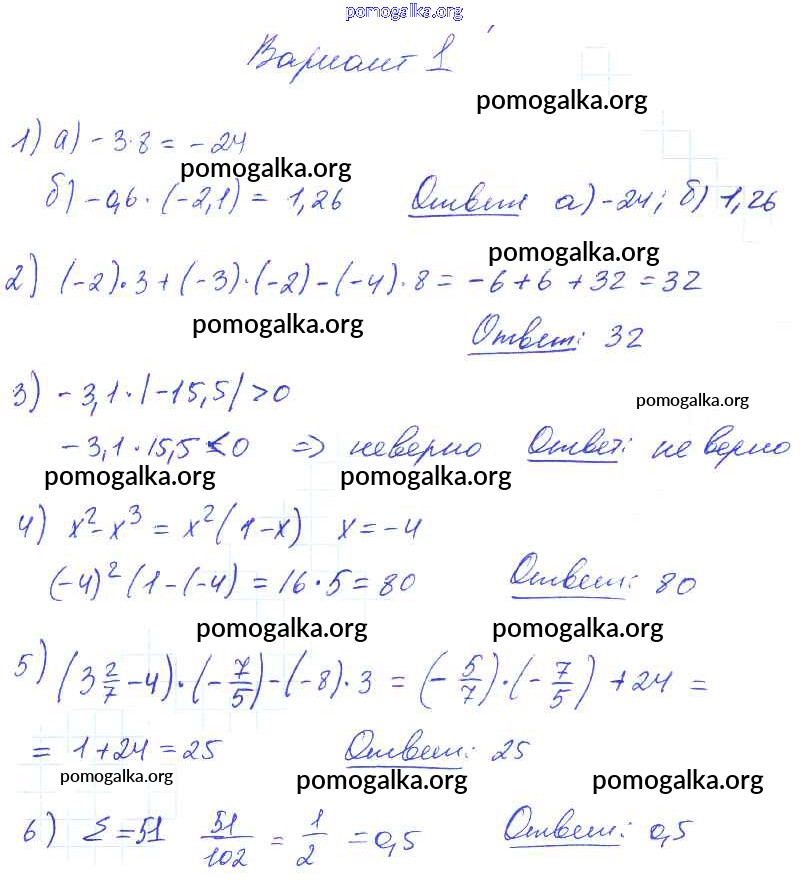 pomogalka.org
Вариант 1
pomogalka.org
1) а) -3·8 = -24
pomogalka.org
б) -0,6·(-2,1) = 1,26 Ответ а) -24; б) 1,26
pomogalka.org
2) (-2)·3+(-3)·(-2)-(-4)·8 = -6+6+32=32
pomogalka.org
Ответ: 32
3) -3,1·|-15,5|>0
pomogalka.org
-3,1·15,5<0 => неверно Ответ: не верно
pomogalka.org pomogalka.org
4) x²-x³ = x²(1-x) x=-4
(-4)²(1-(-4) = 16·5=80 Ответ: 80
pomogalka.org pomogalka.org
5) (3 2/7 -4)·(-7/5)-(-8)·3 = (-5/7)·(-7/5)+24 =
= 1+24=25 Ответ: 25
pomogalka.org pomogalka.org pomogalka.org
6) Σ=51 51/102 = 1/2 =0,5 Ответ: 0,5